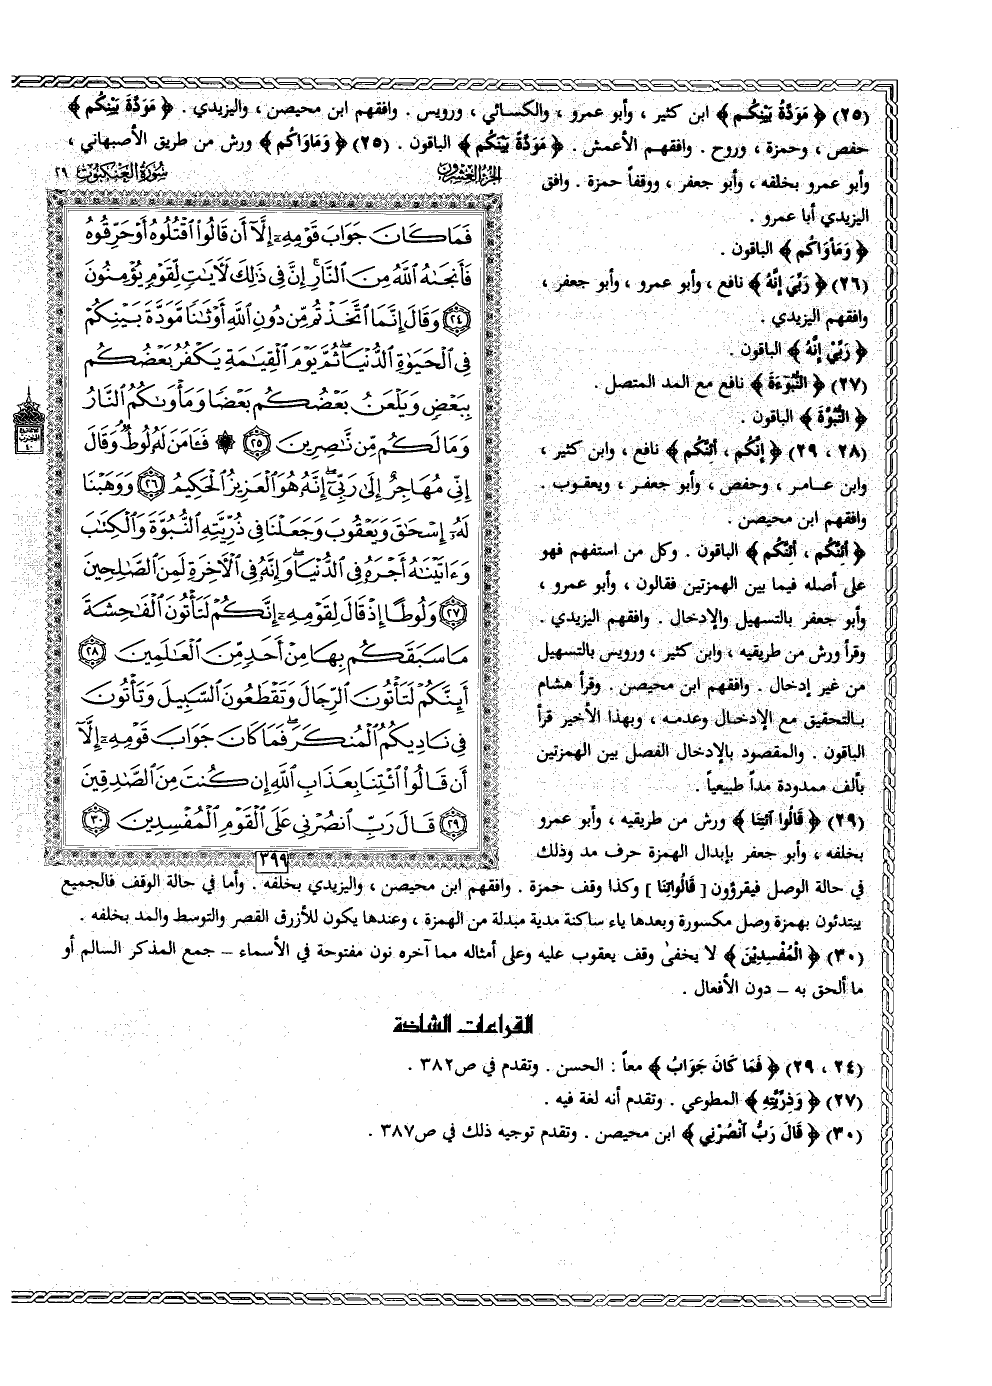 (٢٥) ﴿ مَوَدَّةُ بَيْنِكُم ﴾ ابن كثير ، وأبو عمرو ، والكسائي ، ورويس . وافقهم ابن محيصن ، واليزيدي . ﴿ مَوَدَّةَ بَيْنِكُم ﴾
حفص ، وحمزة ، وروح . وافقهم الأعمش . ﴿ مَوَدَّةً بَيْنَكُم ﴾ الباقون . (٢٥) ﴿ وَمَاوَاكُم ﴾ ورش من طريق الأصبهاني ،
وأبو عمرو بخلفه ، وأبو جعفر ، ووقفاً حمزة . وافق
اليزيدي أبا عمرو .
﴿ وَمَأوَاكُم ﴾ الباقون .
(٢٦) ﴿ رَبِّيَ إِنَّهُ ﴾ نافع ، وأبو عمرو ، وأبو جعفر ،
وافقهم اليزيدي .
﴿ رَبِّيْ إِنَّهُ ﴾ الباقون .
(٢٧) ﴿ النُّبُوْءَةَ ﴾ نافع مع المد المتصل .
﴿ النُّبُوَّةَ ﴾ الباقون .
(٢٨ ، ٢٩) ﴿ إِنَّكُم ، أَئِنَّكُم ﴾ نافع ، وابن كثير ،
وابن عـامـر ، وحفص ، وأبو جعفـر ، ويعقـوب .
وافقهم ابن محيصن .
﴿ أَئِنَّكُم ، أَئِنَّكُم ﴾ الباقون . وكل من استفهم فهو
على أصله فيما بين الهمزتين فقالون ، وأبو عمرو ،
وأبو جعفر بالتسهيل والإدخال . وافقهم اليزيدي .
وقرأ ورش من طريقيه ، وابن كثير ، ورويس بالتسهيل
من غير إدخال . وافقهم ابن محيصن . وقرأ هشام
بـالتحقيق مع الإدخـال وعدمـه ، وبهذا الأخير قرأ
الباقون . والمقصود بالإدخال الفصل بين الهمزتين
بألف ممدودة مداً طبيعياً .
(٢٩) ﴿ قَالُوا ائتِنَا ﴾ ورش من طريقيه ، وأبو عمرو
بخلفه ، وأبو جعفر بإبدال الهمزة حرف مد وذلك
الجزء العشرون
سورة العنكبوت ٢٩
فَمَا كَانَ جَوَابَ قَوْمِهِۦٓ إِلَّآ أَن قَالُوا۟ ٱقْتُلُوهُ أَوْ حَرِّقُوهُ
فَأَنجَىٰهُ ٱللَّهُ مِنَ ٱلنَّارِ ۚ إِنَّ فِى ذَٰلِكَ لَآيَـٰتٍ لِّقَوْمٍ يُؤْمِنُونَ
﴿٢٤﴾ وَقَالَ إِنَّمَا ٱتَّخَذْتُم مِّن دُونِ ٱللَّهِ أَوْثَـٰنًا مَّوَدَّةَ بَيْنِكُمْ
فِى ٱلْحَيَوٰةِ ٱلدُّنْيَا ۖ ثُمَّ يَوْمَ ٱلْقِيَـٰمَةِ يَكْفُرُ بَعْضُكُم
بِبَعْضٍ وَيَلْعَنُ بَعْضُكُم بَعْضًا وَمَأْوَىٰكُمُ ٱلنَّارُ
وَمَا لَكُم مِّن نَّـٰصِرِينَ ﴿٢٥﴾ ۞ فَـَٔامَنَ لَهُۥ لُوطٌ ۘ وَقَالَ
إِنِّى مُهَاجِرٌ إِلَىٰ رَبِّىٓ ۖ إِنَّهُۥ هُوَ ٱلْعَزِيزُ ٱلْحَكِيمُ ﴿٢٦﴾ وَوَهَبْنَا
لَهُۥٓ إِسْحَـٰقَ وَيَعْقُوبَ وَجَعَلْنَا فِى ذُرِّيَّتِهِ ٱلنُّبُوَّةَ وَٱلْكِتَـٰبَ
وَءَاتَيْنَـٰهُ أَجْرَهُۥ فِى ٱلدُّنْيَا ۖ وَإِنَّهُۥ فِى ٱلْـَٔاخِرَةِ لَمِنَ ٱلصَّـٰلِحِينَ
﴿٢٧﴾ وَلُوطًا إِذْ قَالَ لِقَوْمِهِۦٓ إِنَّكُمْ لَتَأْتُونَ ٱلْفَـٰحِشَةَ
مَا سَبَقَكُم بِهَا مِنْ أَحَدٍ مِّنَ ٱلْعَـٰلَمِينَ ﴿٢٨﴾
أَئِنَّكُمْ لَتَأْتُونَ ٱلرِّجَالَ وَتَقْطَعُونَ ٱلسَّبِيلَ وَتَأْتُونَ
فِى نَادِيكُمُ ٱلْمُنكَرَ ۖ فَمَا كَانَ جَوَابَ قَوْمِهِۦٓ إِلَّآ
أَن قَالُوا۟ ٱئْتِنَا بِعَذَابِ ٱللَّهِ إِن كُنتَ مِنَ ٱلصَّـٰدِقِينَ
﴿٢٩﴾ قَالَ رَبِّ ٱنصُرْنِى عَلَى ٱلْقَوْمِ ٱلْمُفْسِدِينَ ﴿٣٠﴾
٣٩٩
في حالة الوصل فيقرؤون [ قَالُواتِنَا ] وكذا وقف حمزة . وافقهم ابن محيصن ، واليزيدي بخلفه . وأما في حالة الوقف فالجميع
يبتدئون بهمزة وصل مكسورة وبعدها ياء ساكنة مدية مبدلة من الهمزة ، وعندها يكون للأزرق القصر والتوسط والمد بخلفه .
(٣٠) ﴿ الْمُفْسِدِيْنَ ﴾ لا يخفىٰ وقف يعقوب عليه وعلى أمثاله مما آخره نون مفتوحة في الأسماء – جمع المذكر السالم أو
ما ألحق به – دون الأفعال .
القراءات الشاذة
(٢٤ ، ٢٩) ﴿ فَمَا كَانَ جَوَابُ ﴾ معاً : الحسن . وتقدم في ص٣٨٢ .
(٢٧) ﴿ وَذِرِّيَّتِهِ ﴾ المطوعي . وتقدم أنه لغة فيه .
(٣٠) ﴿ قَالَ رَبُّ انْصُرْنِي ﴾ ابن محيصن . وتقدم توجيه ذلك في ص٣٨٧ .